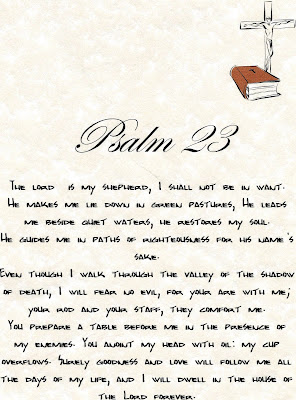 Psalm 23
The Lord is my shepherd, I shall not be in want.
He makes me lie down in green pastures, He leads
me beside quiet waters, he restores my soul.
He guides me in paths of righteousness for his name's
sake.
Even though I walk through the valley of the shadow
of death, I will fear no evil, for your are with me;
your rod and your staff, they comfort me.
You prepare a table before me in the presence of
my enemies. You anoint my head with oil: my cup
overflows. Surely goodness and love will follow me all
the days of my life, and I will dwell in the house of
the Lord forever.